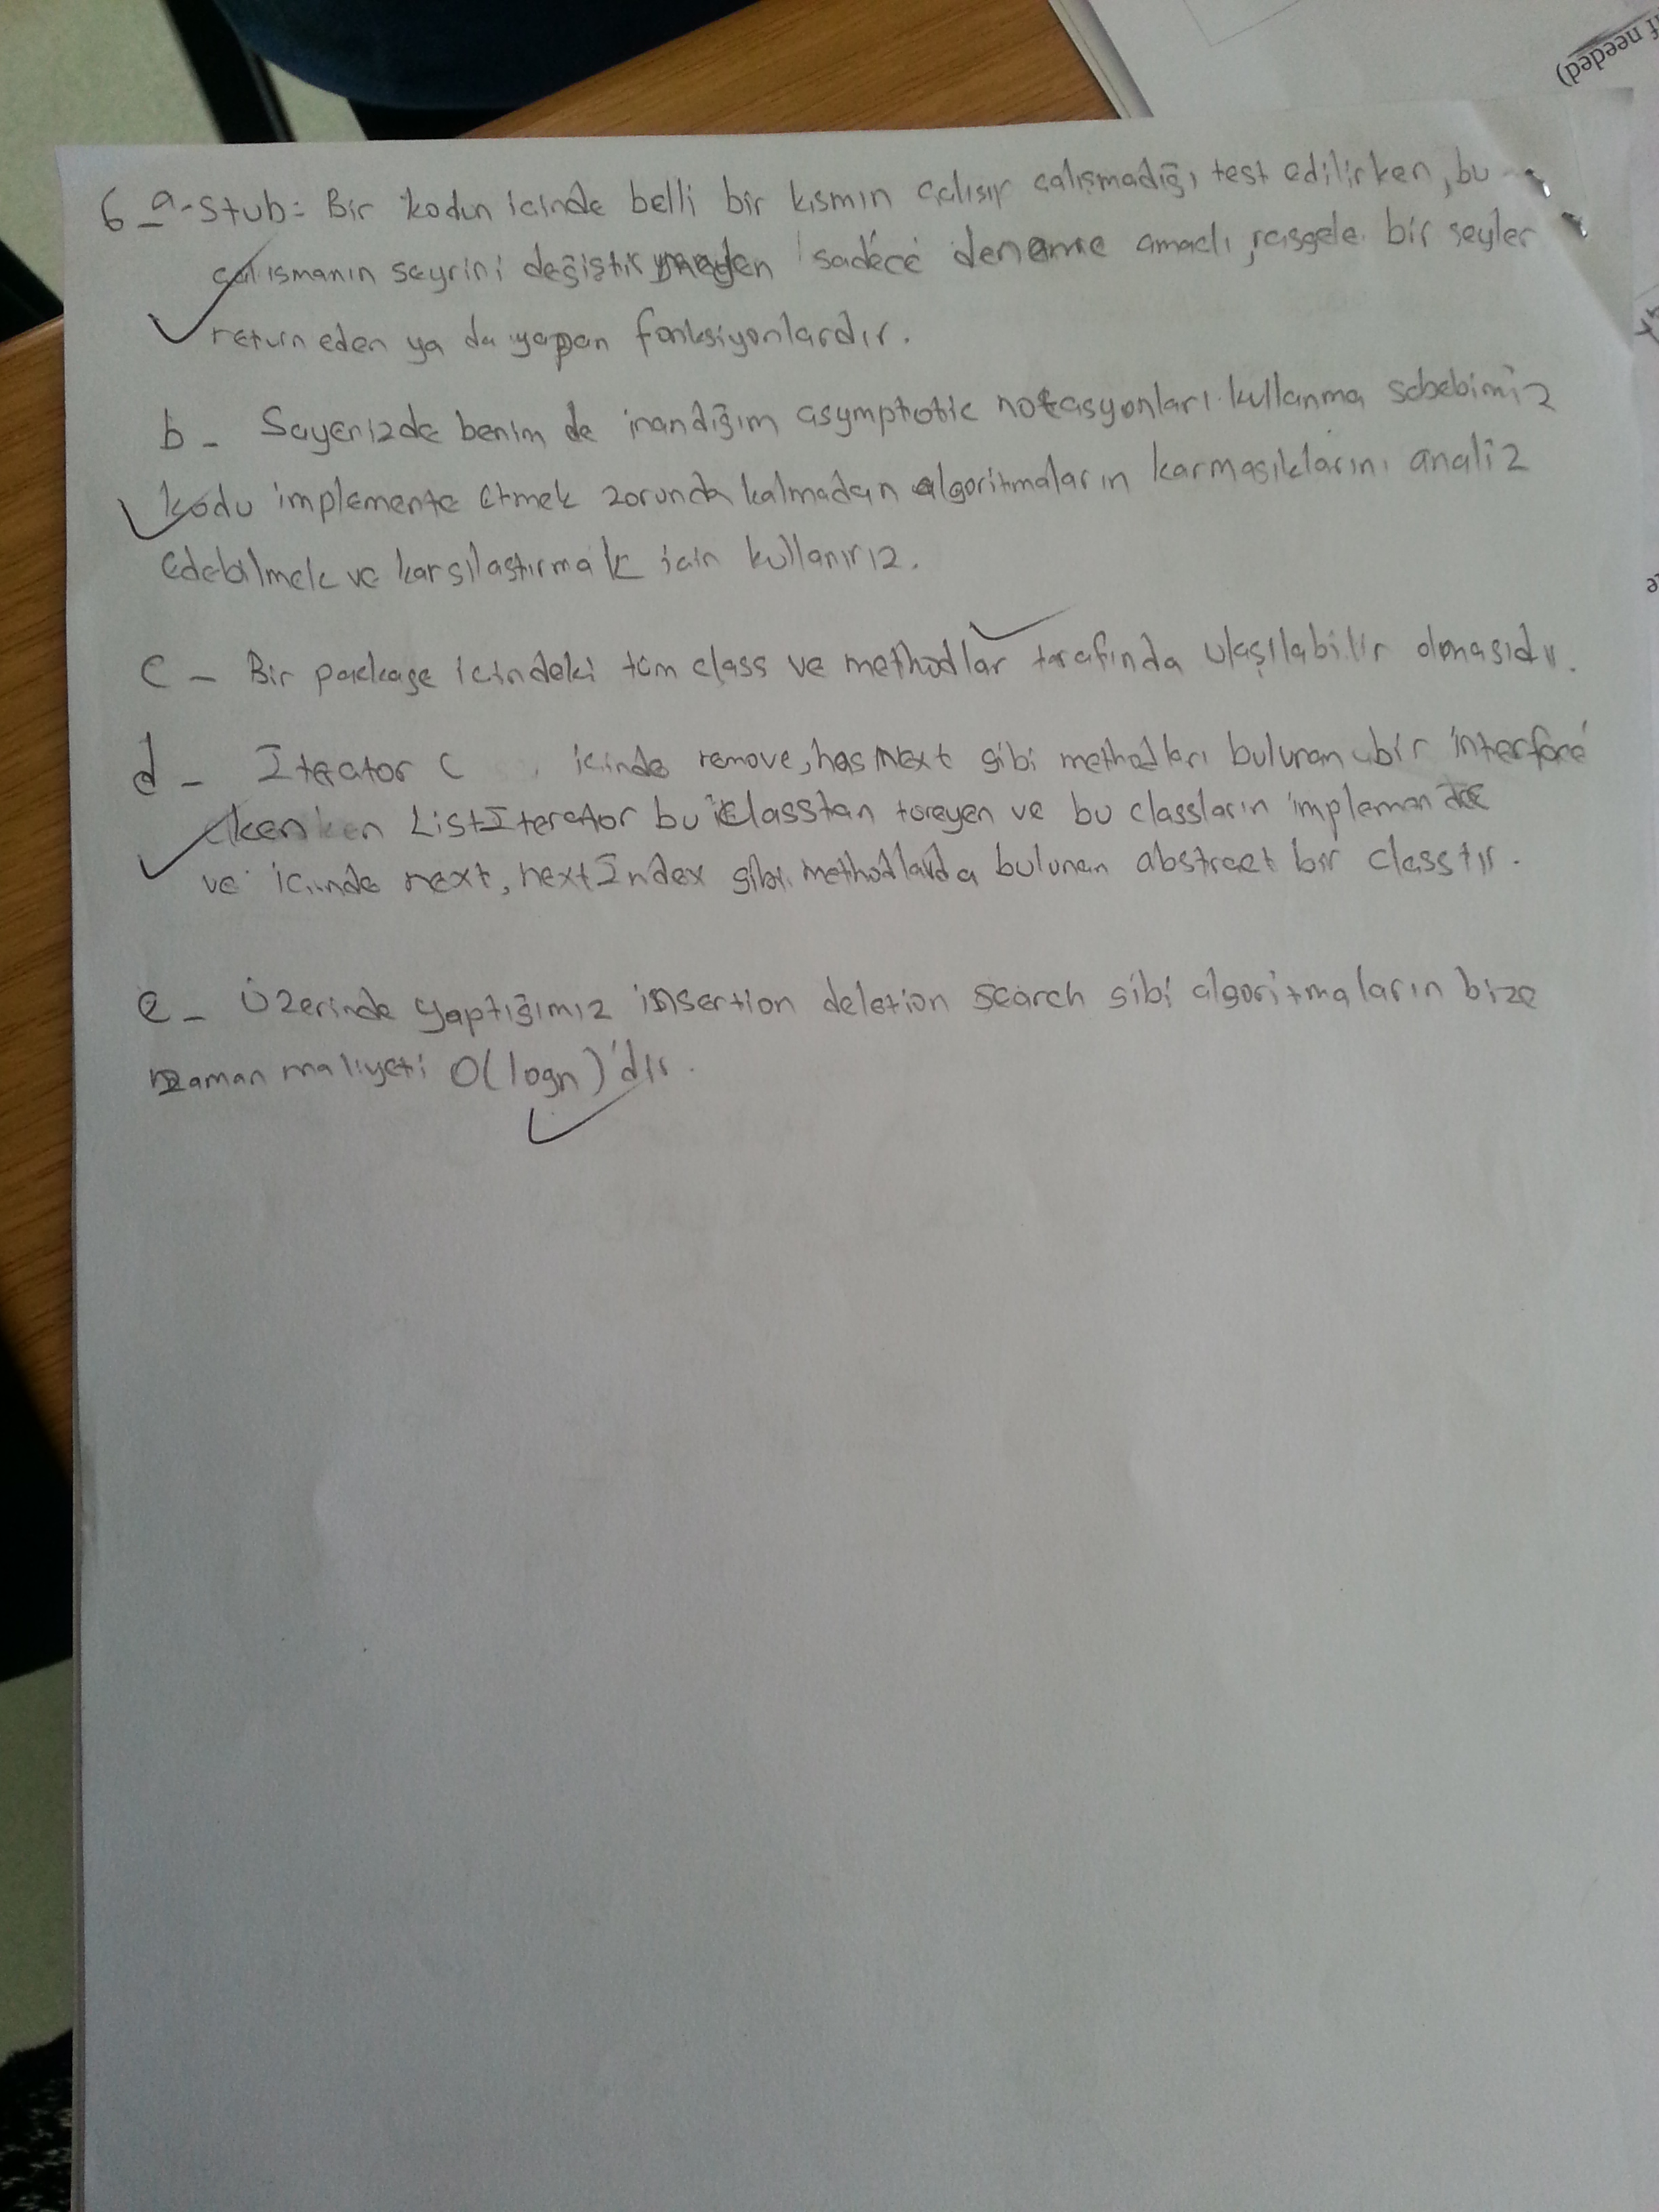 if needed)
6-a-Stub: Bir kodun icinde belli bir kısmın çalışıp calışmadığı test edilirken, bu
calısmanın seyrini değiştirmeyen sadece deneme amaclı, rasgele bir seyler
return eden ya da yapan fonksiyonlardır.
b- Sayenizde benim de inandığım asymptotic notasyonları kullanma sebebimiz
kodu implemente etmek zorunda kalmadan algoritmaların karmasıklarını analiz
edebilmek ve karsılastırmak icin kullanırız.
c- Bir package icindeki tüm class ve methodlar tarafında ulaşılabilir olmasıdır.
d- Iterator ( icinde remove, hasNext gibi methodları bulunan bir interface
ken ListIterator bu classtan türeyen ve bu classların
ve icinde next, nextIndex gibi methodlarda bulunan abstract bir classtır.
e- Üzerinde yaptığımız insertion deletion search gibi algoritmaların bize
zaman maliyeti O(logn)'dir.